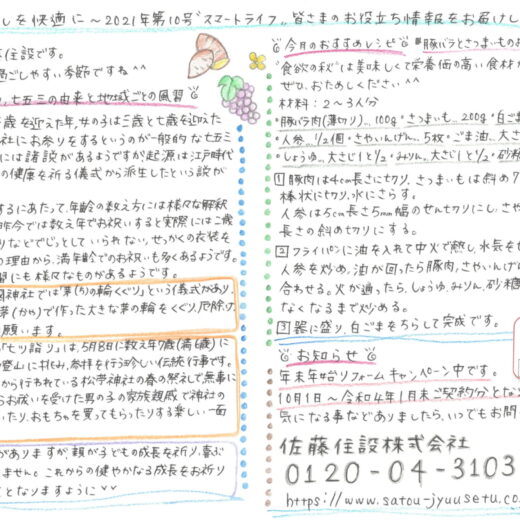 しを快適に～2021年第10号〝スマートライフ〟皆さまのお役立ち情報をお届けし
住設です。
過ごしやすい季節ですね^^
、七五三の由来と地域ごとの風習
歳を迎えた年、女の子は三歳と七歳を迎えた
社にお参りをするというのが一般的な七五三
には諸説があるようですが起源は江戸時代
の健康を祈る儀式から派生したという説が
するにあたって、年齢の数え方には様々な解釈
昨今では数え年でお祝いすると実際には2歳
りなどでじっとしていられない、せっかくの衣装を
の理由から、満年齢でのお祝いも多くあるようです。
習にも様々なものがあるようです。
神社では「茅(ち)の輪くぐり」という儀式があり、
茅(かや)で作った大きな茅の輪をくぐり、厄除け、
願います。
「七ツ詣り」は、5月8日に数え年7歳(満6歳)に
登山に挑み、参拝を行う珍しい伝統行事です。
から行われている松苧神社の春の祭礼で無事に
らお祓いを受けた男の子の家族親戚で神社の
いたり、おもちゃを買ってもらったりする楽しい一面
がありますが、親が子どもの成長を祈り、喜ぶ
ません。これからの健やかなる成長をお祈り
となりますように^^
今月のおすすめレシピ 〝豚バラとさつまいものお
〝食欲の秋〟は美味しくて栄養価の高い食材が
ぜひ、おためしください^^
材料：2～3人分
・豚バラ肉(薄切り)…100g・さつまいも…200g・白ごま
・人参…1/2個・さやいんげん…5枚・ごま油…大さ
・しょうゆ…大さじ1と1/2・みりん…大さじ1と1/2・砂糖
1 豚肉は4cm長さに切り、さつまいもは斜め7
棒状に切り、水にさらす。
人参は5cm長さ5mm幅のせん切りにし、さや
長さの斜め切りにする。
2 フライパンに油を入れて中火で熱し、水気を
人参を炒め、油が回ったら豚肉、さやいんげん
合わせる。火が通ったら、しょうゆ、みりん、砂糖
なくなるまで炒める。
3 器に盛り、白ごまをちらして完成です。
お知らせ
年末年始リフォームキャンペーン中です。
10月1日～令和4年1月末ご契約分となり
気になる事などありましたら、いつでもお問
佐藤住設株式会社
0120-04-3103
https://www.satou-jyuusetu.co